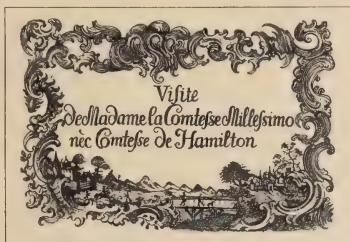 Visite
De Madame la Comtesse Millesimo
nèc Comtesse de Hamilton